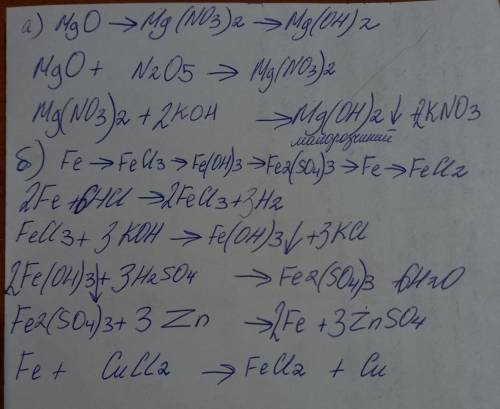 а) MgO → Mg(NO3)2 → Mg(OH)2
MgO + N2O5 → Mg(NO3)2
Mg(NO3)2 + 2KOH → Mg(OH)2 ↓ + 2KNO3
малорозчинний
б) Fe → FeCl3 → Fe(OH)3 → Fe2(SO4)3 → Fe → FeCl2
2Fe + 6HCl → 2FeCl3 + 3H2
FeCl3 + 3KOH → Fe(OH)3 ↓ + 3KCl
2Fe(OH)3 ↓ + 3H2SO4 → Fe2(SO4)3 6H2O
Fe2(SO4)3 + 3Zn → 2Fe + 3ZnSO4
Fe + CuCl2 → FeCl2 + Cu